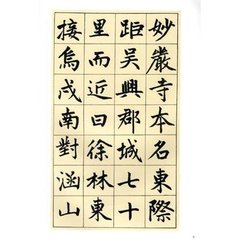 妙嚴寺本名東際
距吳興郡城七十
里而近曰徐林東
接烏戍南對涵山